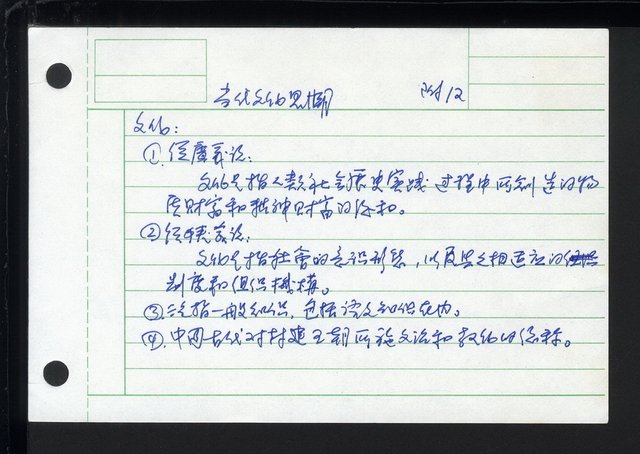 当代文化思潮 附12
文化：
①.從廣義说：
文化是指人类社会历史实践过程中所创造的物
质财富和精神财富的总和。
②從狭義说：
文化是指社會的意识形态，以及与之相适应的
制度和组织機構。
③泛指一般知识，包括语文知识在内。
④.中国古代对封建王朝所施文治和教化的总称。